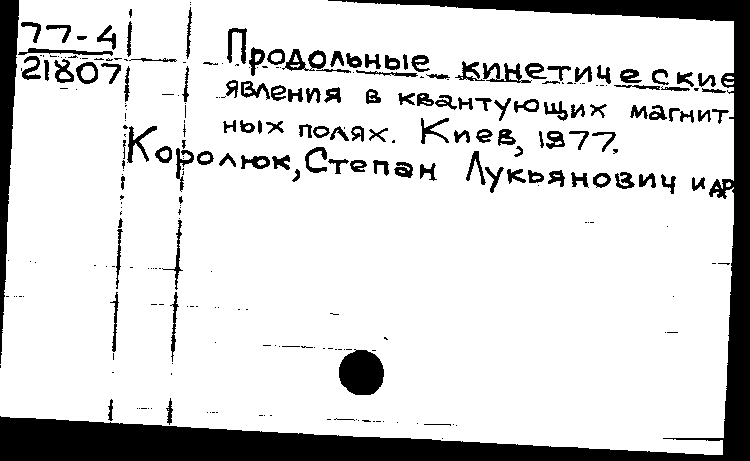 77-4
21807
Продольные кинетические
явления в квантующих магнит-
ных полях. Киев, 1977.
Королюк, Степан Лукьянович и др.